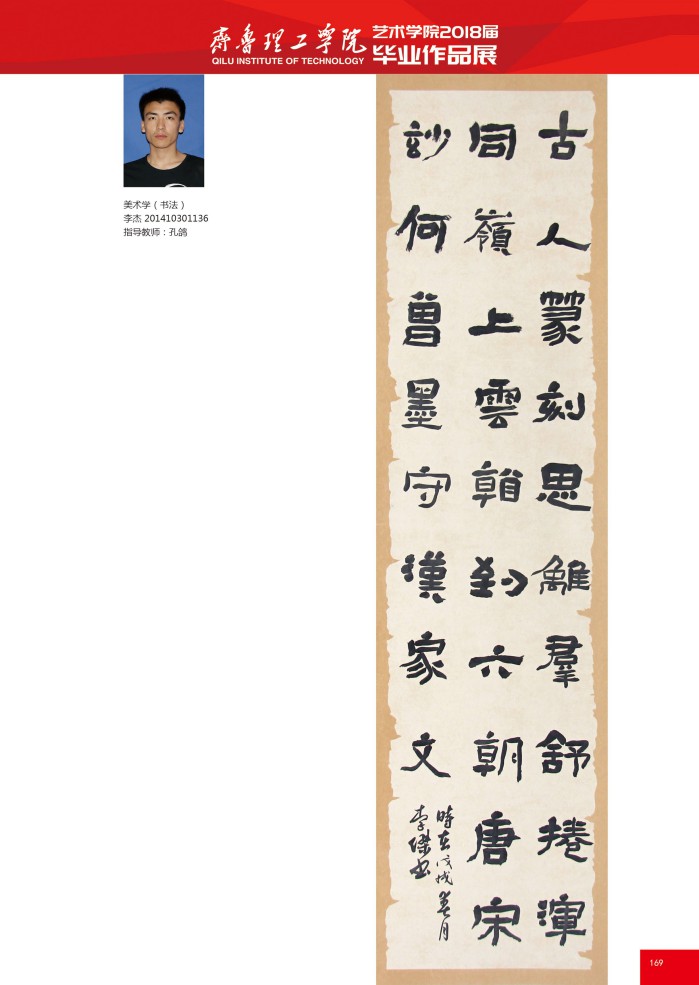 齊魯理工學院
QILU INSTITUTE OF TECHNOLOGY
艺术学院2018届
毕业作品展
美术学（书法）
李杰 201410301136
指导教师：孔鸽
古人篆刻思離羣舒捲渾
同嶺上雲看到六朝唐宋
玅何曾墨守漢家文
時在戊戌春月
李傑書
169